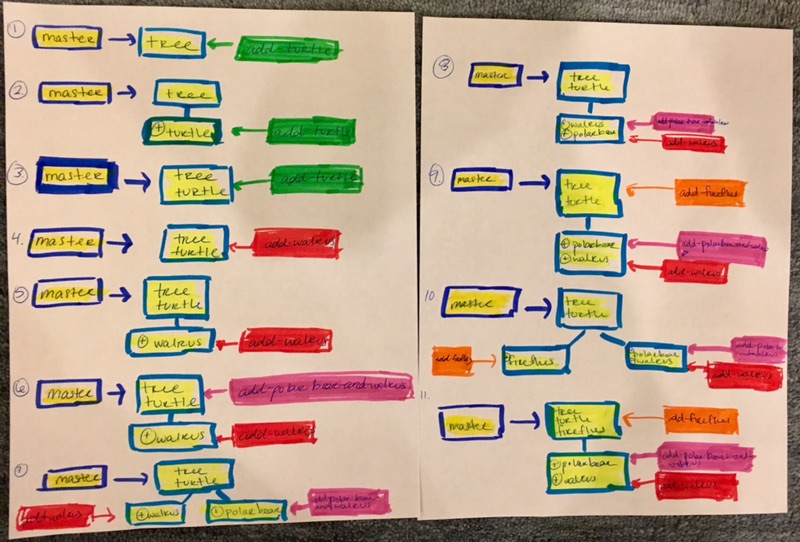 1
master
tree
add-turtle
2.
master
tree
+ turtle
add-turtle
3
master
tree
turtle
add-turtle
4.
master
tree
turtle
add-walrus
5
master
tree
turtle
+ walrus
add-walrus
6
master
tree
turtle
add-polar bear-and-walrus
+ walrus
add-walrus
7
master
tree
turtle
+ walrus
+ polar bear
add-polar bear
and-walrus
8
master
tree
turtle
walrus
polarbear
add-walrus
9.
master
tree
turtle
add-fireflies
+ polarbear
+ walrus
add-walrus
10
master
tree
turtle
fireflies
polarbear
walrus
add-walrus
11.
master
tree
turtle
fireflies
add-fireflies
+ polarbear
+ walrus
add-polar bear-and-
walrus
add-walrus